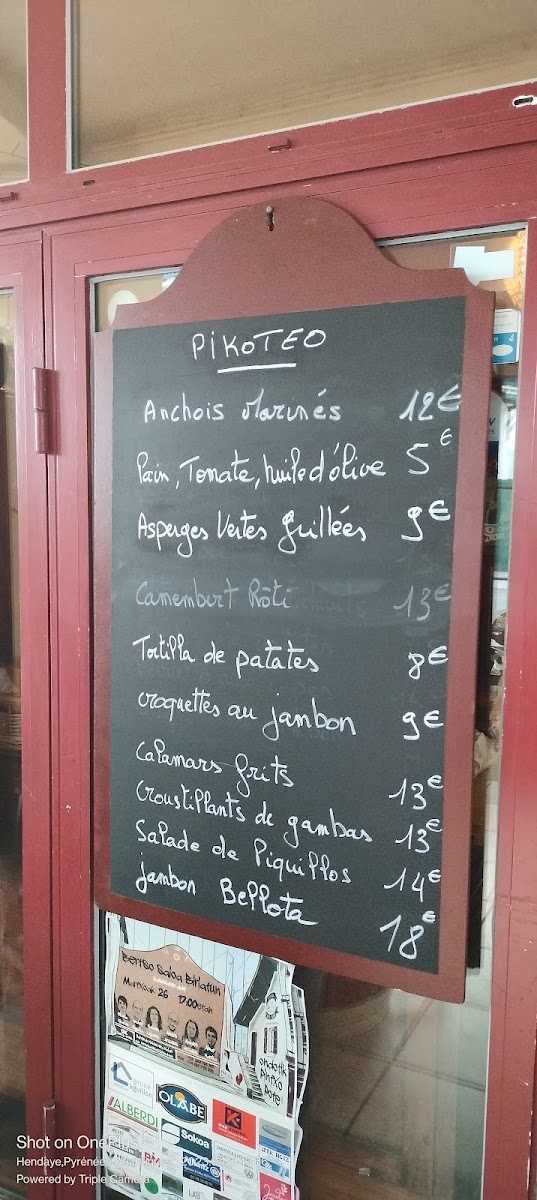 PiKOTEO
Anchois Marinés 12€
Pain, Tomate, huile d'olive 5€
Asperges Vertes Grillées 9€
Camembert Rôti 13€
Tortilla de patates 8€
Croquettes au jambon 9€
Calamars frits 13€
Croustillants de gambas 13€
Salade de Piquillos 14€
jambon Bellota 18€
Bertso Saioa Biriatun
Martxoak 26 17:00etan
ALBERDI
OLABE
Sokoa
Shot on OnePlus
Powered by Triple Camera